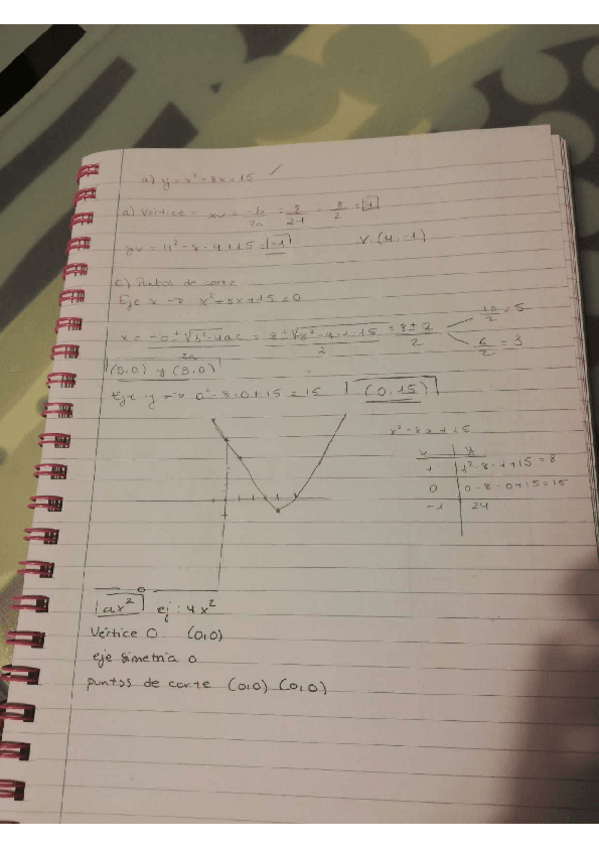 a) y = x² - 8x = 15 ✓
a) Vértice - xv = -b/2a = 8/2·1 = 8/2 = 4
yv = 4² - 8 · 4 + 15 = -1 V (4, -1)
c) Puntos de corte
Eje x → x² - 8x + 15 = 0
x = -b ± √b² - 4ac / 2a = 8 ± √8² - 4 · 1 · 15 / 2 = 8 ± 2 / 2
10/2 = 5
6/2 = 3
(5,0) y (3,0)
Eje y → 0² - 8 · 0 + 15 = 15 (0,15)
x² - 8x + 15
x y
1 1² - 8 · 1 + 15 = 8
0 0 - 8 · 0 + 15 = 15
-1 24
ax² ej: 4x²
Vértice 0 (0,0)
eje simetría 0
puntos de corte (0,0) (0,0)